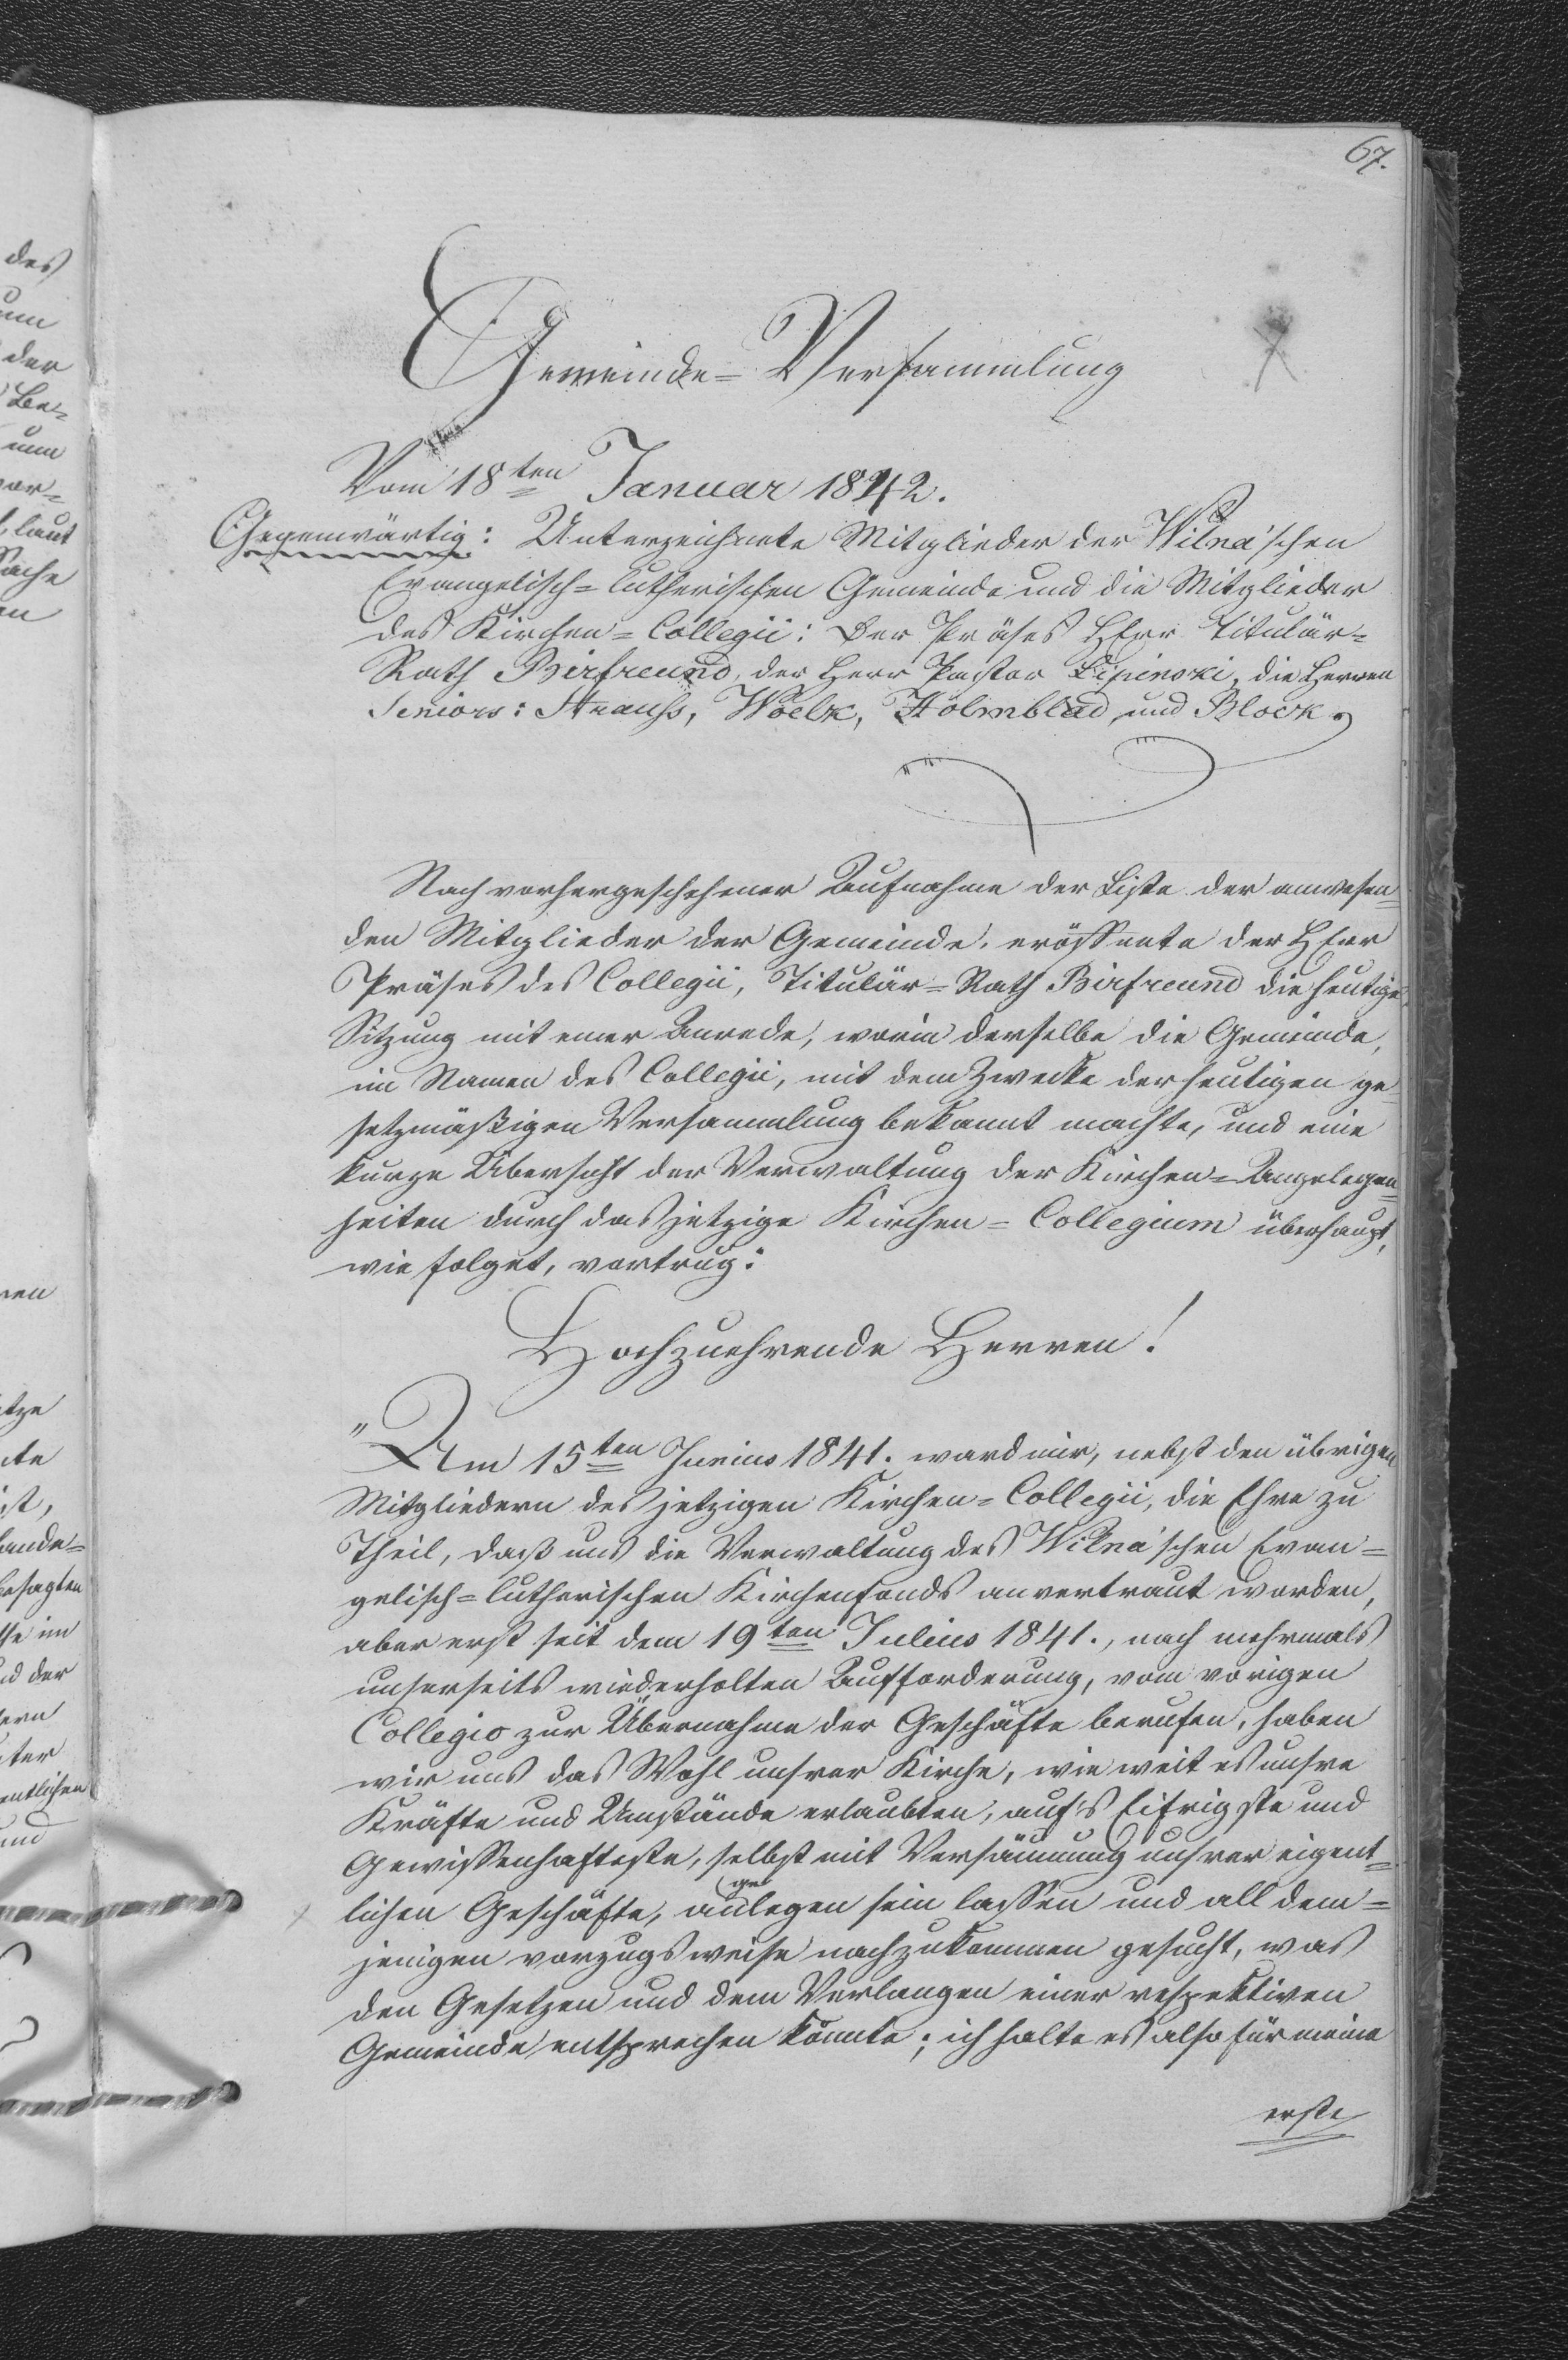 67.
Gemeinde-Versammlung
Vom 18ten Januar 1842.
Gegenwärtig: Unterzeichnete Mitglieder der Wilna'schen
Evangelisch-lutherischen Gemeinde und die Mitglieder
des Kirchen-Collegii: Der Präses HErr Titulär-
Rath Birfreund, der Herr Pastor Lipinski, die Herren
Seniors: Strauss, Woelk, Holmblad und Block.
Nach vorhergeschehener Aufnahme der Liste der anwesen-
den Mitglieder der Gemeinde, eröffnete der HErr
Präses des Collegii, Titulär-Rath Birfreund die heutige
Sitzung mit einer Anrede, worin derselbe die Gemeinde,
im Namen des Collegii, mit dem Zwecke der heutigen ge-
setzmäßigen Versammlung bekannt machte, und eine
kurze Übersicht der Verwaltung der Kirchen-Angelegen-
heiten durch das jetzige Kirchen-Collegium überhaupt,
wie folget, vortrug:
Hochzuehrende Herren!
"Am 15ten Junius 1841. ward mir, nebst den übrigen
Mitgliedern des jetzigen Kirchen-Collegii, die Ehre zu
Theil, daß uns die Verwaltung des Wilna'schen Evan-
gelisch-lutherischen Kirchenfonds anvertraut worden,
aber erst seit dem 19ten Julius 1841., nach mehrmals
unserseits wiederholten Aufforderung, vom vorigen
Collegio zur Übernahme der Geschäfte berufen, haben
wir uns das Wohl unsrer Kirche, wie weit es unsre
Kräfte und Umstände erlaubten, auf's Eifrigste und
Gewissenhafteste, selbst mit Versäumung unsrer eigent-
lichen Geschäfte, angelegen sein lassen und all dem-
jenigen vorzugsweise nachzukommen gesucht, was
den Gesetzen und dem Verlangen einer respektiven
Gemeinde entsprechen könnte; ich halte es also für meine
erste